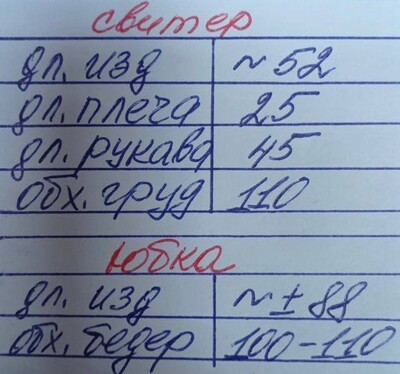 свитер
дл. изд ~ 52
дл. плеча 25
дл. рукава 45
обх. груд 110
юбка
дл. изд ~ ± 88
обх. бедер 100-110